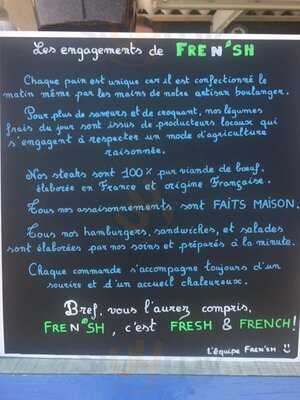 Les engagements de FREN'SH
Chaque pain est unique car il est confectionné le
matin même par les mains de notre artisan boulanger.
Pour plus de saveurs et de croquant, nos légumes
frais du jour sont issus de producteurs locaux qui
s'engagent à respecter un mode d'agriculture
raisonnée.
Nos steaks sont 100% pur viande de bœuf.
élaborée en France et origine Française.
Tous nos assaisonnements sont FAITS MAISON.
Tous nos hamburgers, sandwiches, et salades
sont élaborées par nos soins et préparés à la minute.
Chaque commande s'accompagne toujours d'un
sourire et d'un accueil chaleureux.
Bref, vous l'aurez compris,
FREN'SH, c'est FRESH & FRENCH!
L'équipe FREN'SH